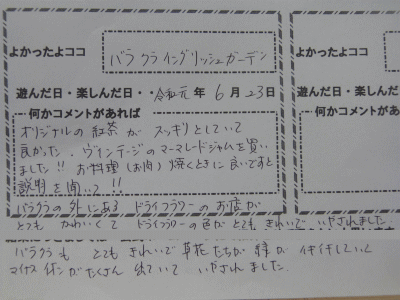 よかったよココ
バラクライングリッシュガーデン
遊んだ日・楽しんだ日・・令和元年 6月23日
何かコメントがあれば
オリジナルの紅茶がスッキリとしていて
良かった。ヴィンテージのマーマレードジャムを買い
ました!! お料理(お肉)焼くときに良いですと
説明を聞いて!!
バラクラの外にある ドライフラワーのお店が
とても かわいくて ドライフラワーの色がとてもきれいで いやされました。
バラクラも とても きれいで 草花たちが イキイキしていて
マイナスイオンがたくさん 出ていて いやされました。
よかったよココ
遊んだ日・楽し
何かコメン